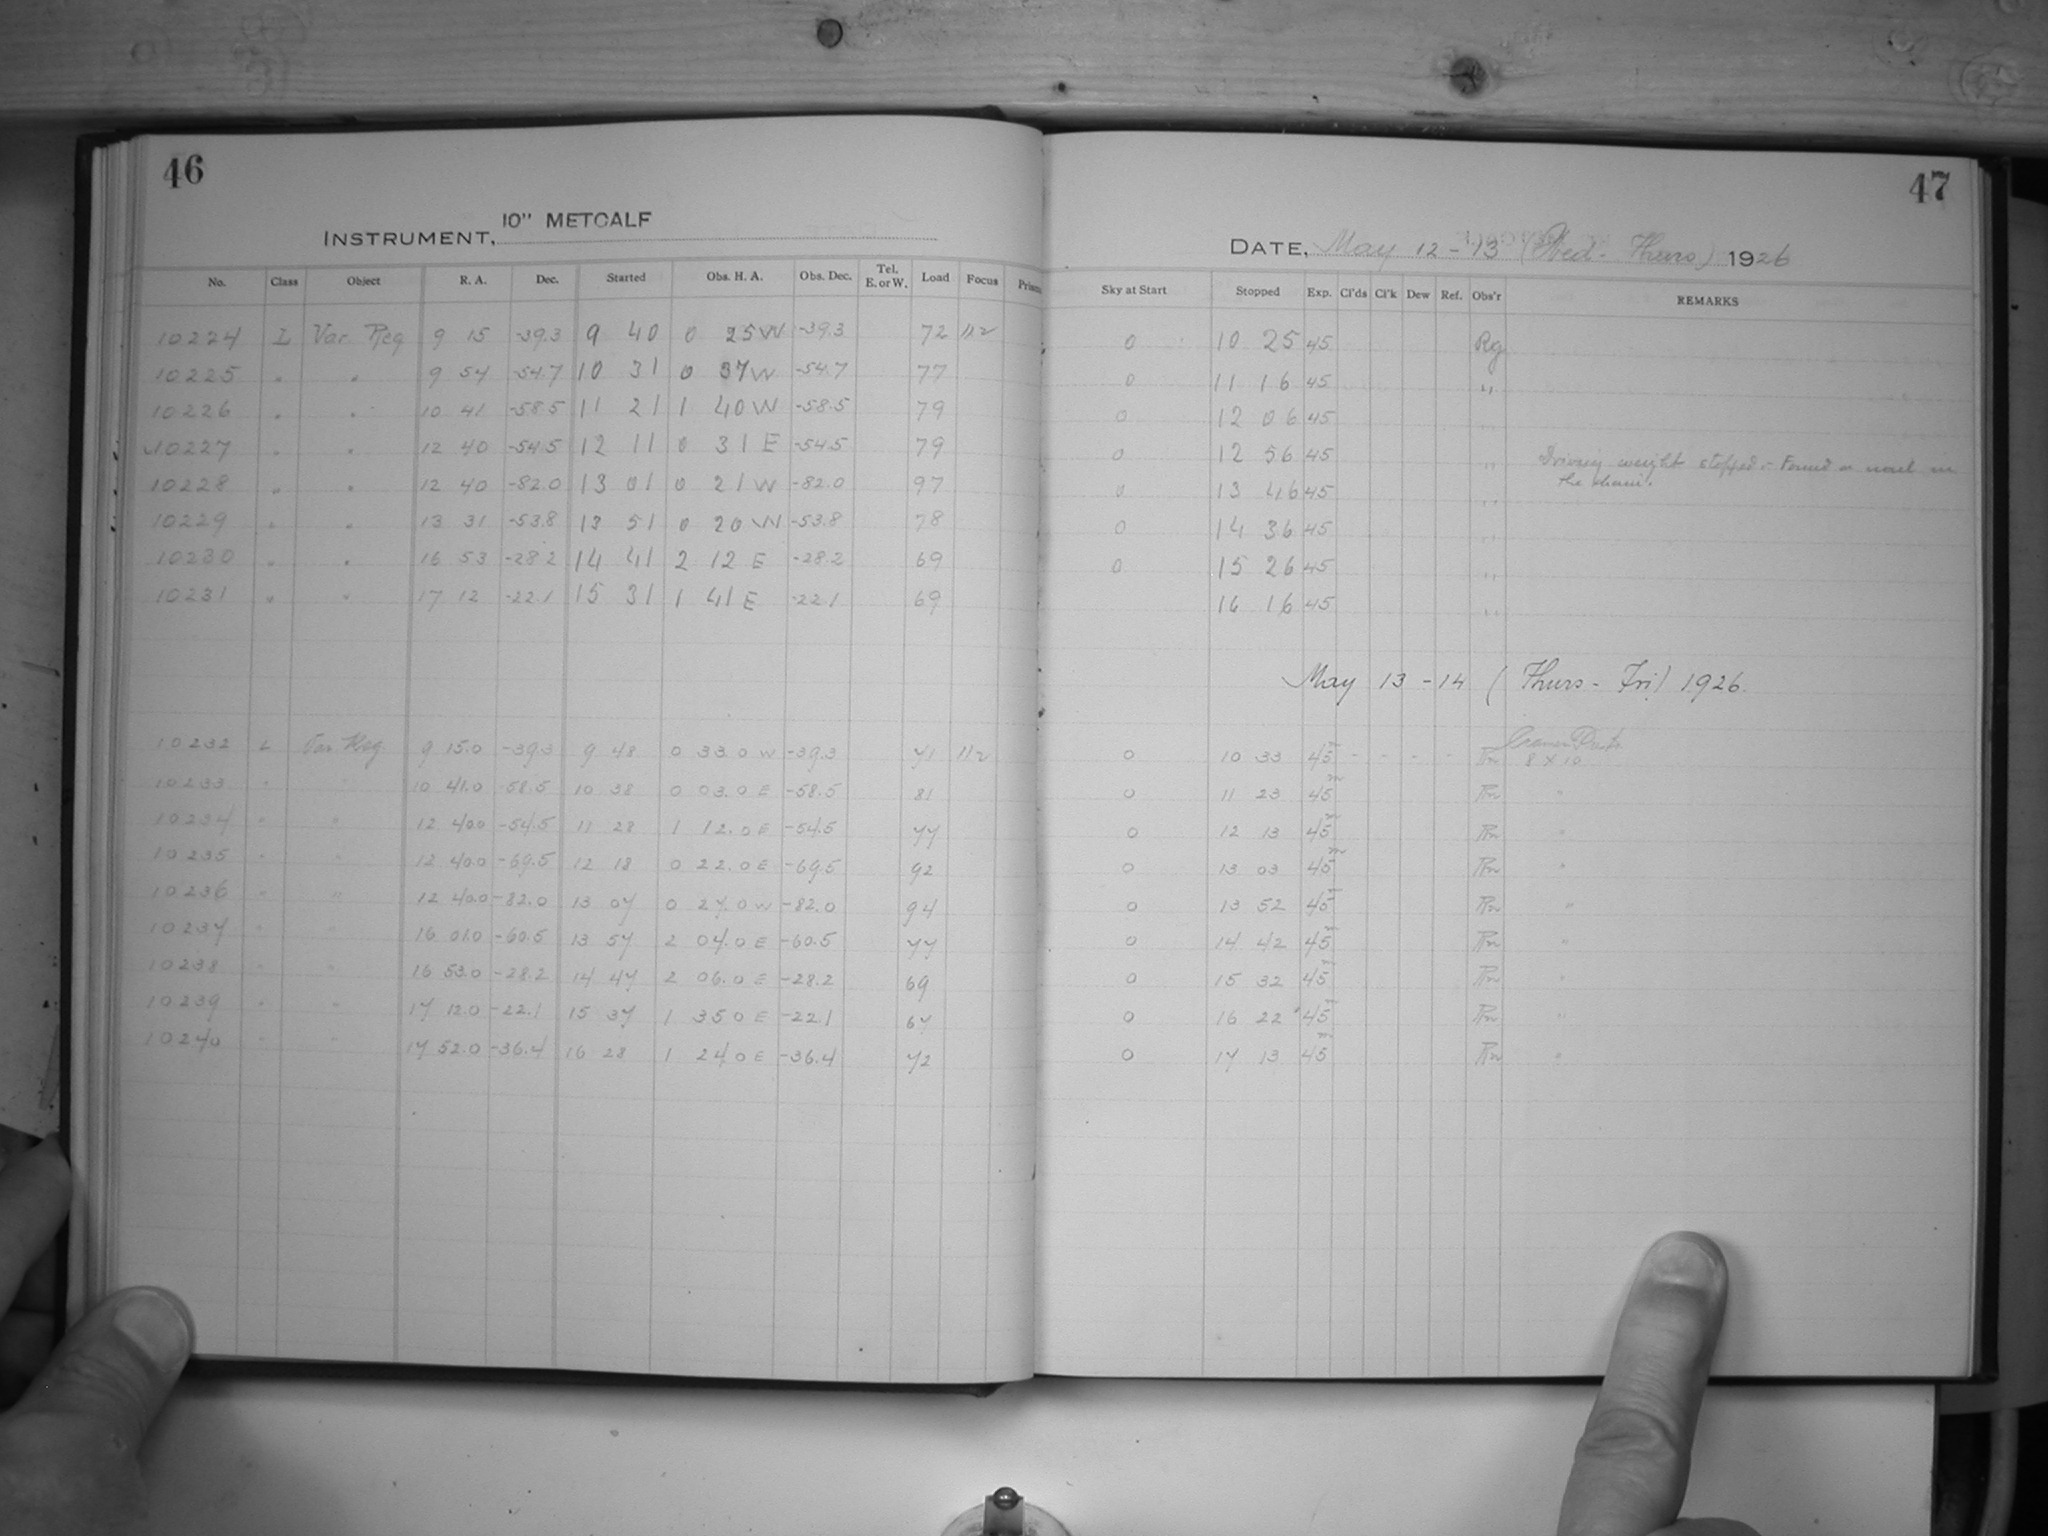 46
INSTRUMENT, 10" METCALF
No. Class Object R. A. Dec. Started Obs. H. A. Obs. Dec. Tel. E. or W. Load Focus Prism
10224 L Var. Reg 9 15 -39.3 9 40 0 25 W -39.3 72 11.2
10225 " " 9 54 -54.7 10 31 0 37 W -54.7 77
10226 " " 10 41 -58.5 11 21 1 40 W -58.5 79
10227 " " 12 40 -54.5 12 11 0 31 E -54.5 79
10228 " " 12 40 -82.0 13 01 0 21 W -82.0 97
10229 " " 13 31 -53.8 13 51 0 20 W -53.8 78
10230 " " 16 53 -28.2 14 41 2 12 E -28.2 69
10231 " " 17 12 -22.1 15 31 1 41 E -22.1 69
10232 L Var. Reg. 9 15.0 -39.3 9 48 0 33.0 W -39.3 71 11.2
10233 " " 10 41.0 -58.5 10 38 0 03.0 E -58.5 81
10234 " " 12 40.0 -54.5 11 28 1 12.0 E -54.5 77
10235 " " 12 40.0 -69.5 12 18 0 22.0 E -69.5 92
10236 " " 12 40.0 -82.0 13 07 0 27.0 W -82.0 94
10237 " " 16 01.0 -60.5 13 57 2 04.0 E -60.5 77
10238 " " 16 53.0 -28.2 14 47 2 06.0 E -28.2 69
10239 " " 17 12.0 -22.1 15 37 1 35.0 E -22.1 67
10240 " " 17 52.0 -36.4 16 28 1 24.0 E -36.4 72
47
DATE, May 12-13 (Wed - Thurs) 1926
Sky at Start Stopped Exp. Cl'ds Cl'k Dew Ref. Obs'r REMARKS
0 10 25 45 Rg
0 11 16 45 "
0 12 06 45 "
0 12 56 45 " Driving weight stopped - Found a nail in
the chain.
0 13 46 45 "
0 14 36 45 "
0 15 26 45 "
16 16 45 "
May 13-14 (Thurs - Fri) 1926.
0 10 33 45m - - - - 8 x 10
0 11 23 45m "
0 12 13 45m "
0 13 03 45m "
0 13 52 45m "
0 14 42 45m "
0 15 32 45m "
0 16 22 45m "
0 17 13 45m "